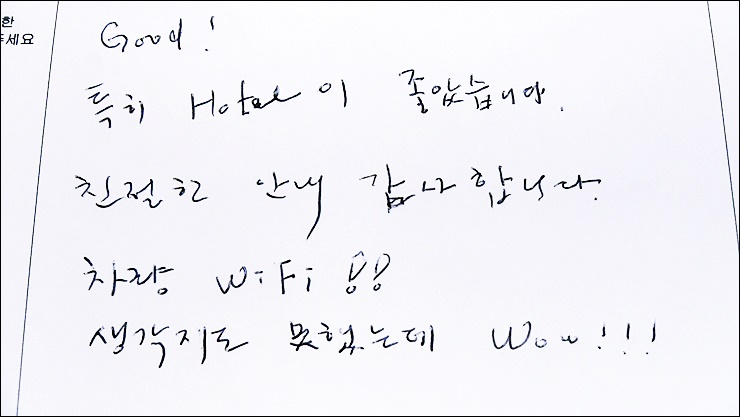 한
주세요
Good!
특히 Hotel이 좋았습니다.
친절한 안내 감사합니다.
차량 WiFi !!
생각지도 못했는데 Wow!!!